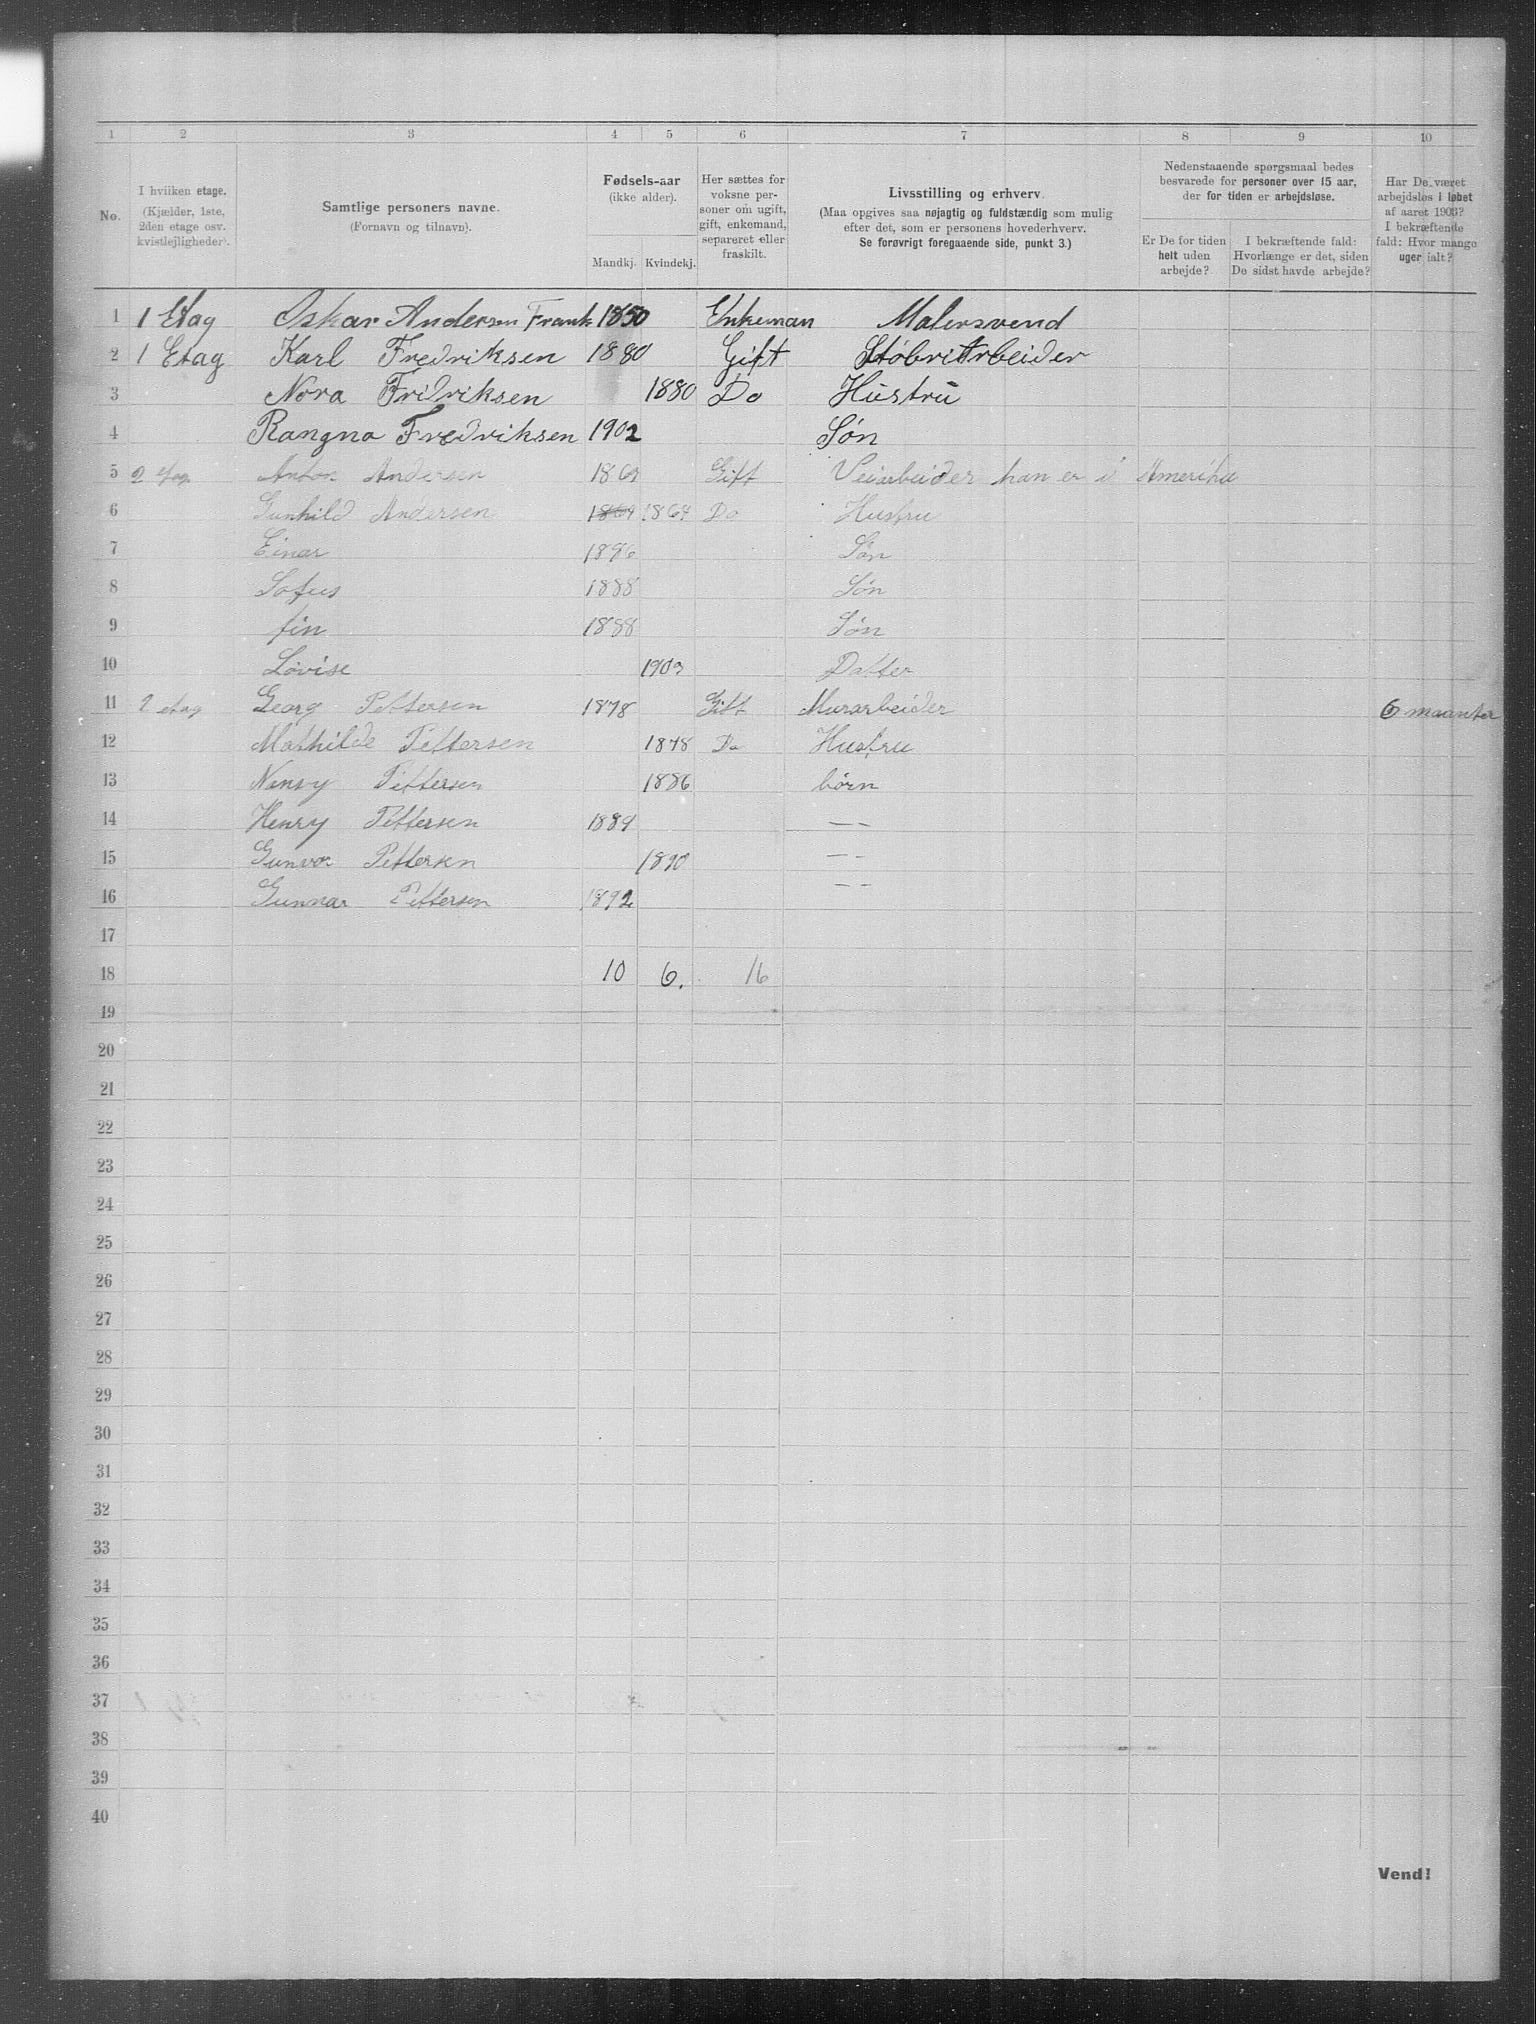 1 2 3 4 5 6 7 8 9 10
No.
I hvilken etage.
(Kjælder, 1ste,
2den etage osv.
kvistlejligheder).
Samtlige personers navne.
(Fornavn og tilnavn).
Fødsels-aar
(ikke alder).
Mandkj. Kvindekj.
Her sættes for
voksne per-
soner om ugift,
gift, enkemand,
separeret eller
fraskilt.
Livsstilling og erhverv.
(Maa opgives saa nøjagtig og fuldstændig som mulig
efter det, som er personens hovederhverv.
Se forøvrigt foregaaende side, punkt 3.)
Nedenstaaende spørgsmaal bedes
besvarede for personer over 15 aar,
der for tiden er arbejdsløse.
Er De for tiden
helt uden
arbejde?
I bekræftende fald:
Hvorlænge er det, siden
De sidst havde arbejde?
Har De været
arbejdsløs i løbet
af aaret 1903?
I bekræftende
fald: Hvor mange
uger ialt?
1 1 Etag Oskar Andersen Frank 1850 Enkeman Malersvend
2 1 Etag Karl Fredriksen 1880 Gift StøbriArbeider
3 Nora Fridriksen 1880 Do Hustru
4 Rangna Fredriksen 1902 Søn
5 2 etag Anton Andersen 1869 Gift Veiarbeider han er i Amerika
6 Gunhild Andersen 1864 Do Hustru
7 Einar 1896 Søn
8 Sofus 1888 Søn
9 fin 1888 Søn
10 Lovise 1903 Datter
11 2 etag Georg Pettersen 1878 Gift Murarbeider 6 maanter
12 Mathilde Pettersen 1848 Do Hustru
13 Nensy Pettersen 1886 børn
14 Henry Pettersen 1889 — –
15 Gunvor Pettersen 1890 — –
16 Gunnar Pettersen 1892 — –
17
18 10 6. 16
19
20
21
22
23
24
25
26
27
28
29
30
31
32
33
34
35
36
37
38
39
40
Vend!